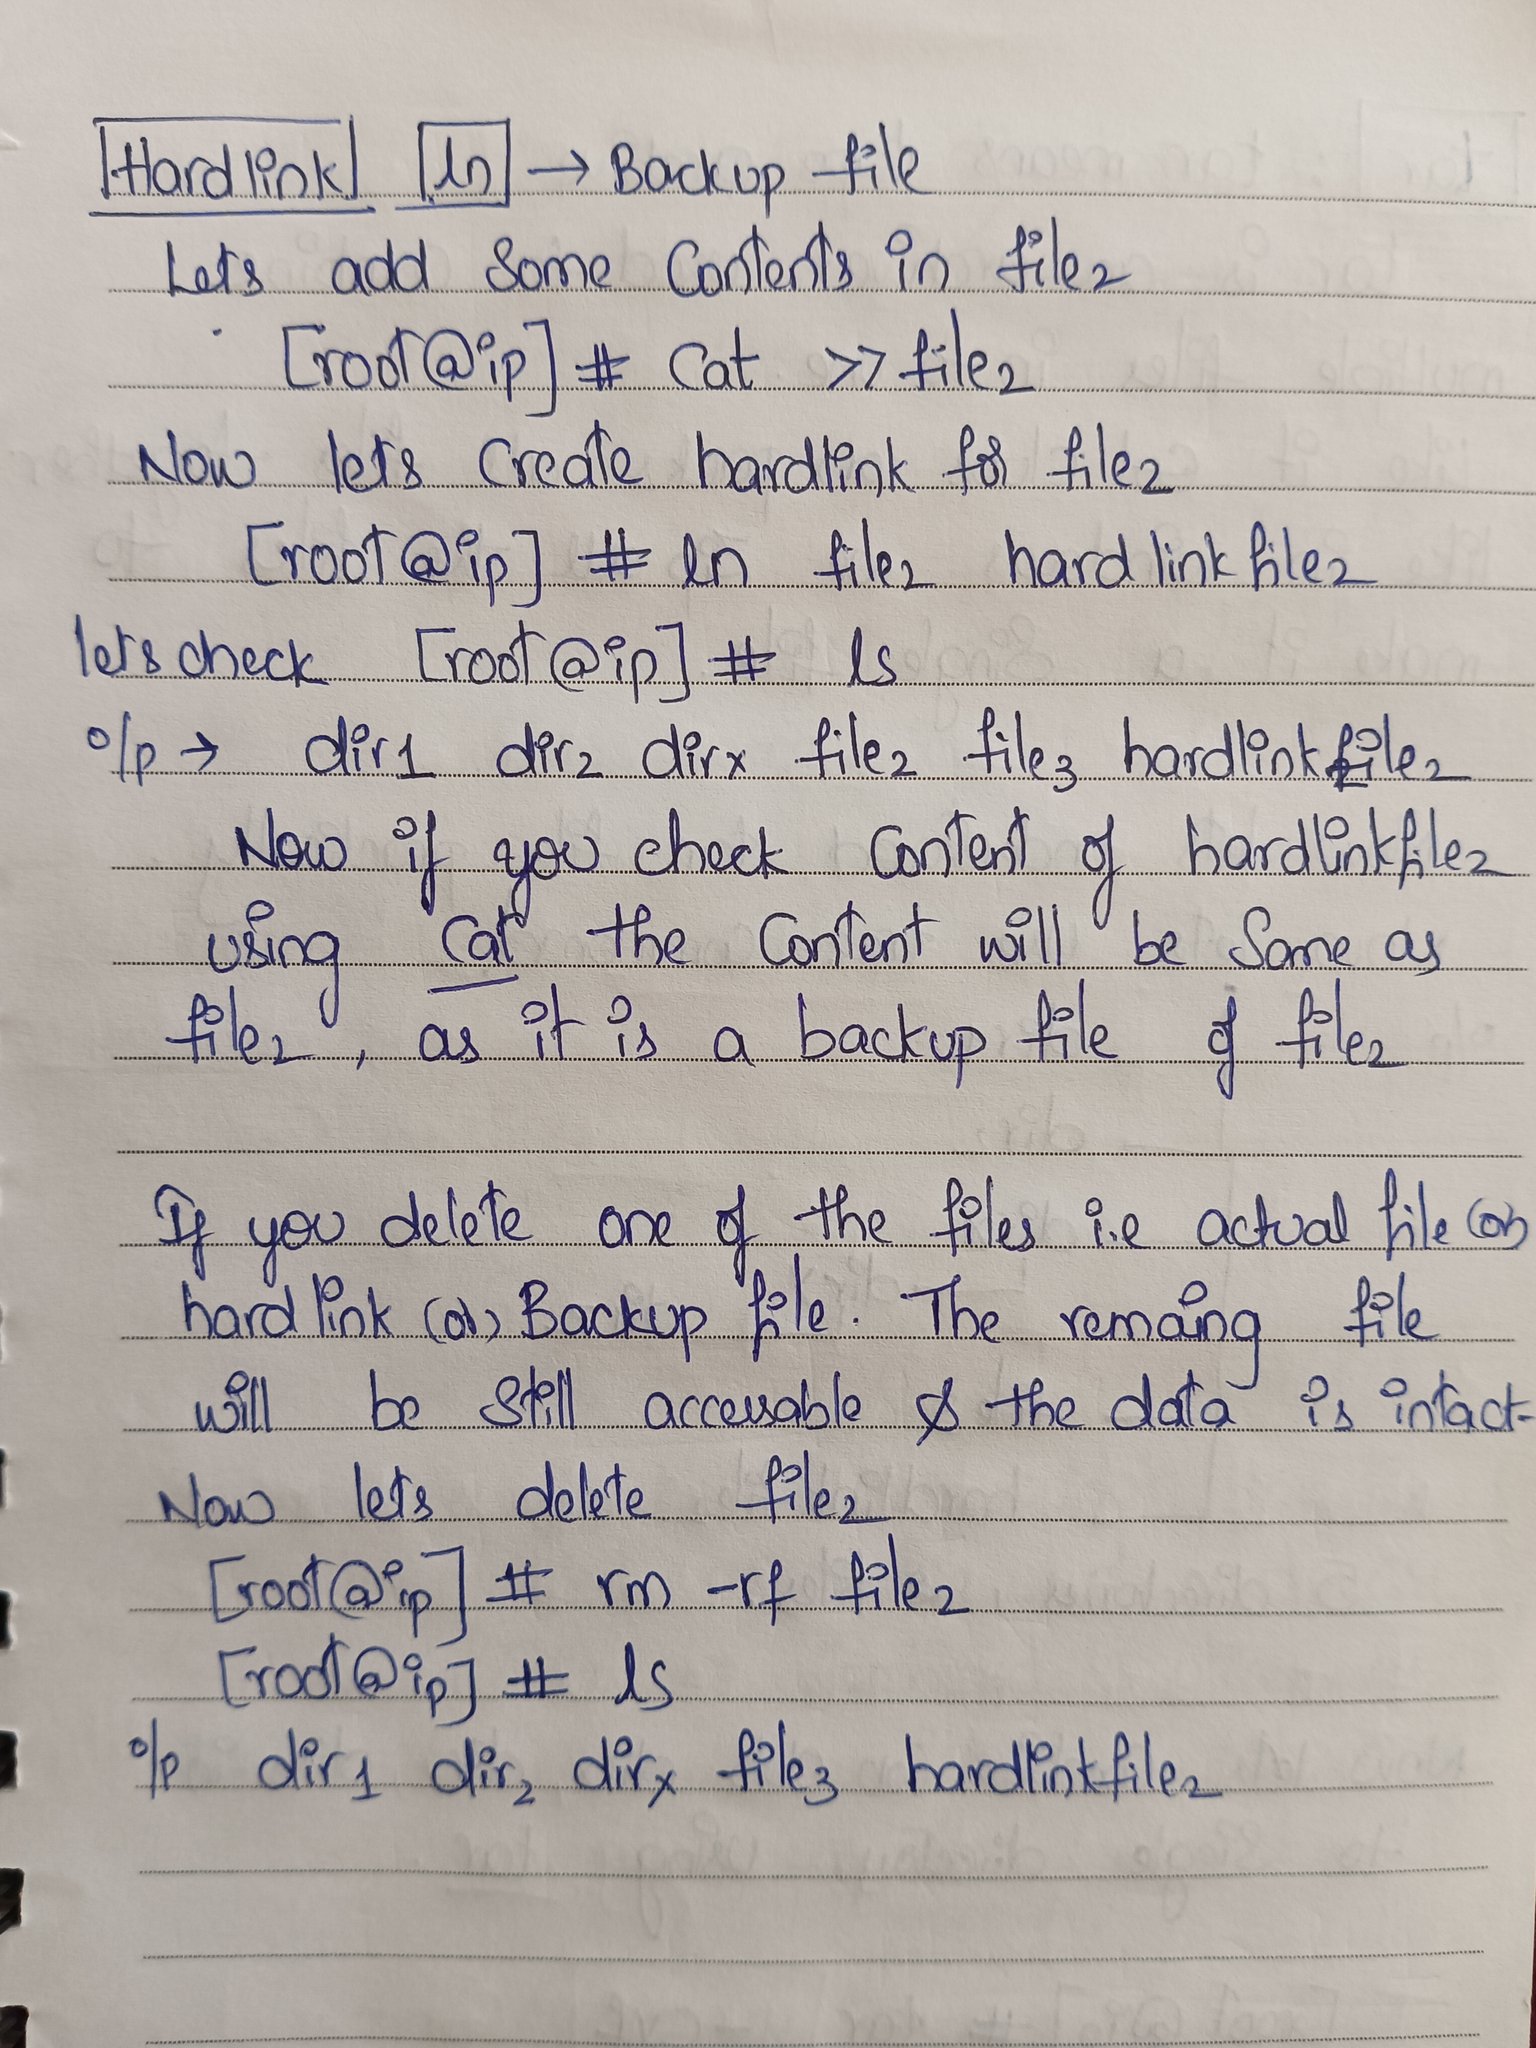 Hardlink ln → Backup file
Lets add Some Contents in file2
[root@ip] # Cat >> file2
Now lets Create hardlink for file2
[root@ip] # ln file2 hardlinkfile2
lets check [root@ip] # ls
o/p → dir1 dir2 dirx file2 file3 hardlinkfile2
Now if you check Content of hardlinkfile2
using Cat the Content will be Same as
file2, as it is a backup file of file2
If you delete one of the files i.e actual file (or)
hardlink (or) Backup file. The remaing file
will be Still accessable & the data is intact-
Now lets delete file2
[root@ip] # rm -rf file2
[root@ip] # ls
o/p dir1 dir2 dirx file3 hardlinkfile2